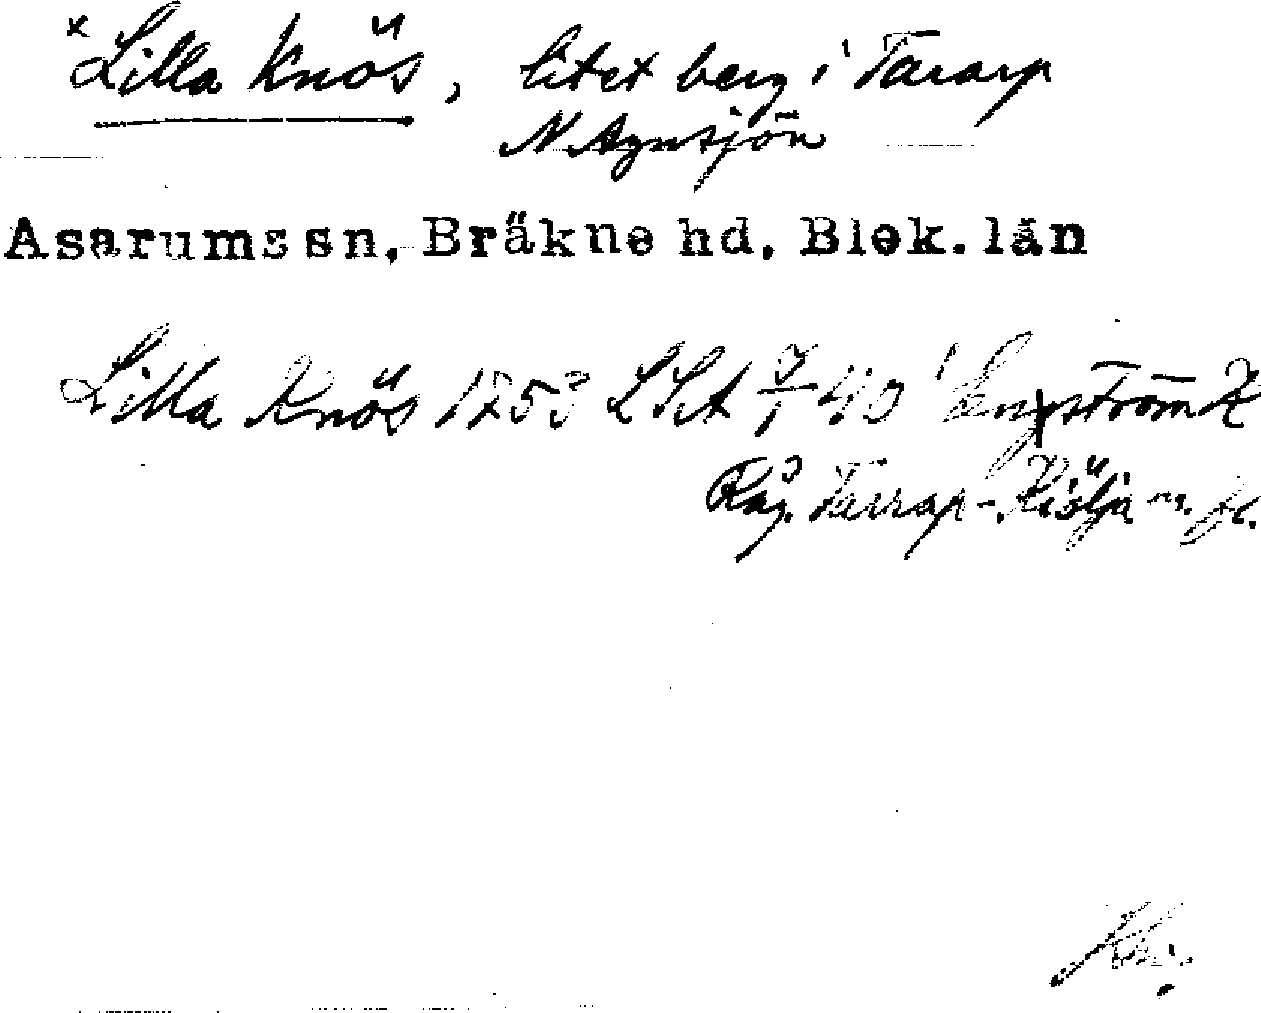 x Lilla Knös, litet berg i Tararp
N Agnsjön
Asarums sn, Bräkne hd, Blek. län
Lilla Knös 1753 LSA 7/1 40 Engström K
Råg. Tararp - Kiölja m. fl.